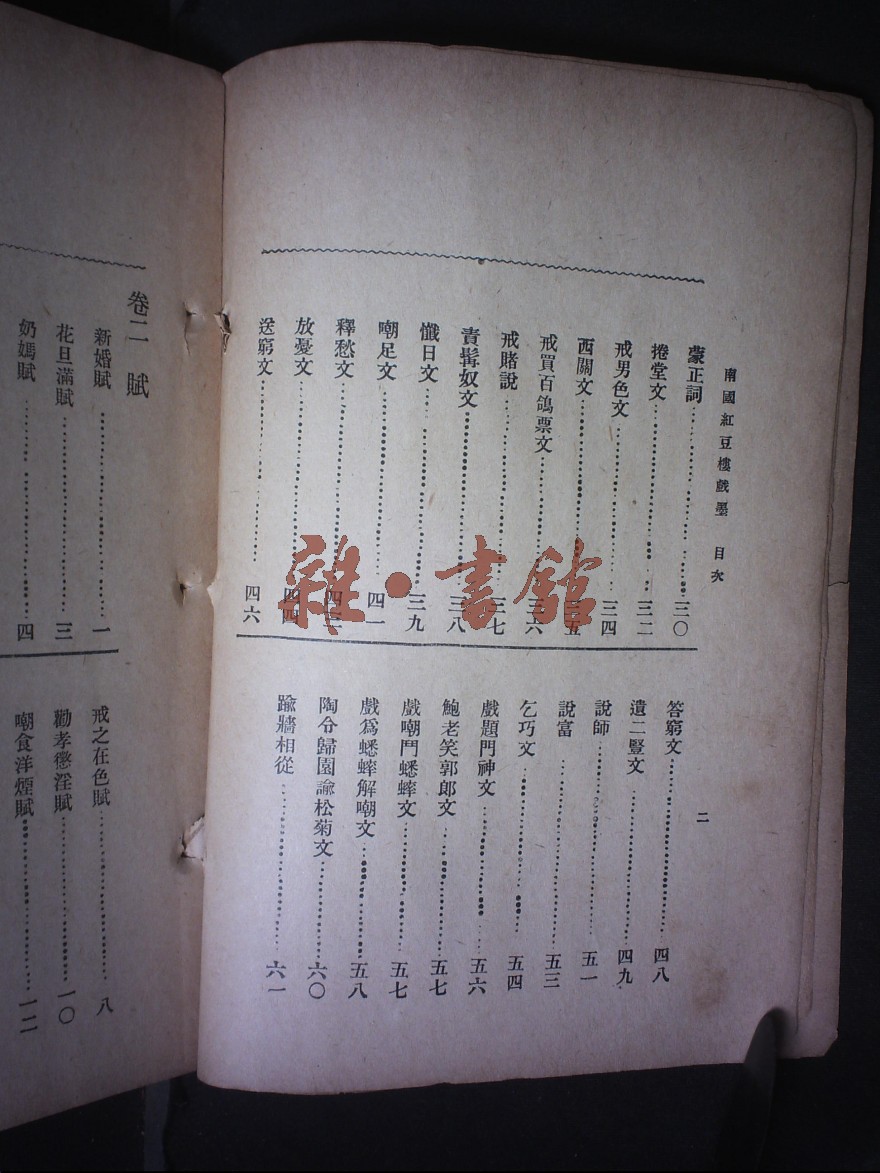 南國紅豆樓戲墨 目次
二
蒙正詞 三〇
捲堂文 三二
戒男色文 三四
西關文 三五
戒買百鴿票文 三六
戒賭說 三七
責髯奴文 三八
懺日文 三九
嘲足文 四一
釋愁文 四三
放憂文 四四
送窮文 四六
答窮文 四八
遺二豎文 四九
說師 五一
說富 五三
乞巧文 五四
戲題門神文 五六
鮑老笑郭郎文 五七
戲嘲鬥蟋蟀文 五七
戲爲蟋蟀解嘲文 五八
陶令歸園諭松菊文 六〇
踰牆相從 六一
卷二 賦
新婚賦 一
花旦滿賦 三
奶媽賦 四
戒之在色賦 八
勸孝懲淫賦 一〇
嘲食洋煙賦 一二
雜·書館